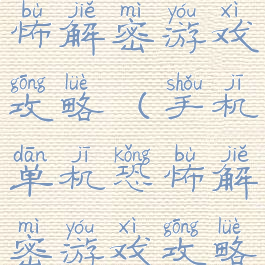 bù jiě mì yóu xì
怖解密游戏
gōng lüè shǒu jī
攻略（手机
dān jī kǒng bù jiě
单机恐怖解
mì yóu xì gōng lüè
密游戏攻略